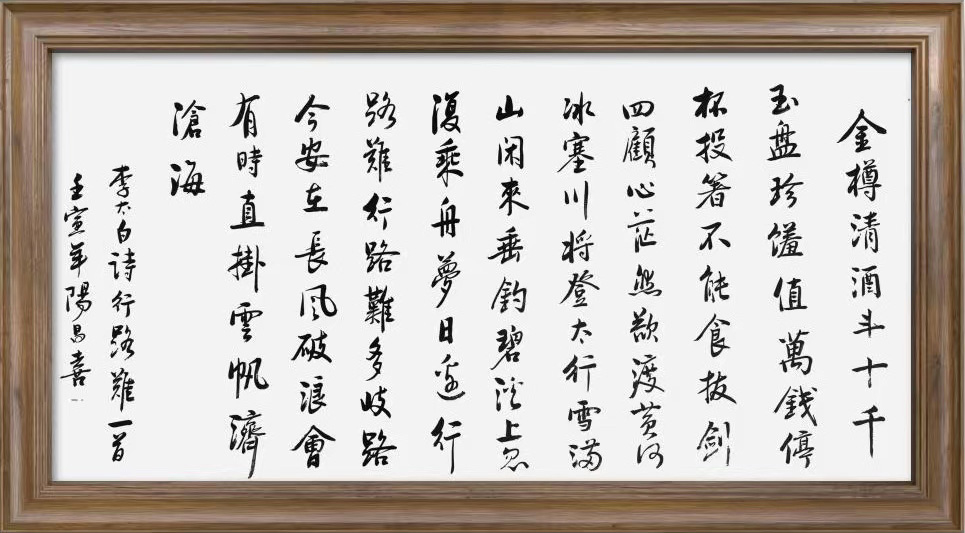 金樽清酒斗十千
玉盘珍馐值萬錢停
杯投箸不能食拔劍
四顧心茫然欲渡黄河
冰塞川将登太行雪满
山闲來垂釣碧溪上忽
復乘舟夢日边行
路難行路難多岐路
今安在長风破浪會
有時直掛雲帆濟
滄海
李太白詩行路難一首
壬寅年陽昌喜